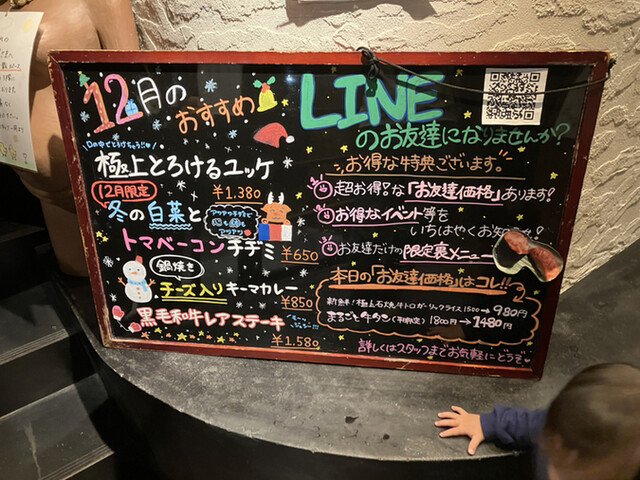 12月の
おすすめ
口の中でとけちゃう!!
極上とろけるユッケ
¥1.380
12月限定
冬の白菜と
トマベーコンチヂミ
¥650
鍋焼き
チーズ入りキーマカレー
¥850
黒毛和牛レアステーキ
¥1.580
LINE
のお友達になりませんか?
お得な特典ございます。
超お得!な「お友達価格」あります!
お得なイベント等を
いちはやくお知
お友達だけの限定裏メニュー
本日の「お友達価格」はコレ!!
1500→980円
まるごと牛タン 1800円→1480円
詳しくはスタッフまでお気軽にどうぞ